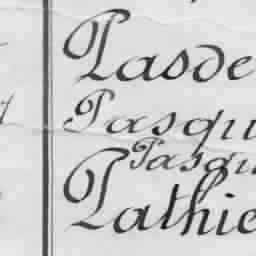 Pasde
Pasqu
Pasqu
Pathie